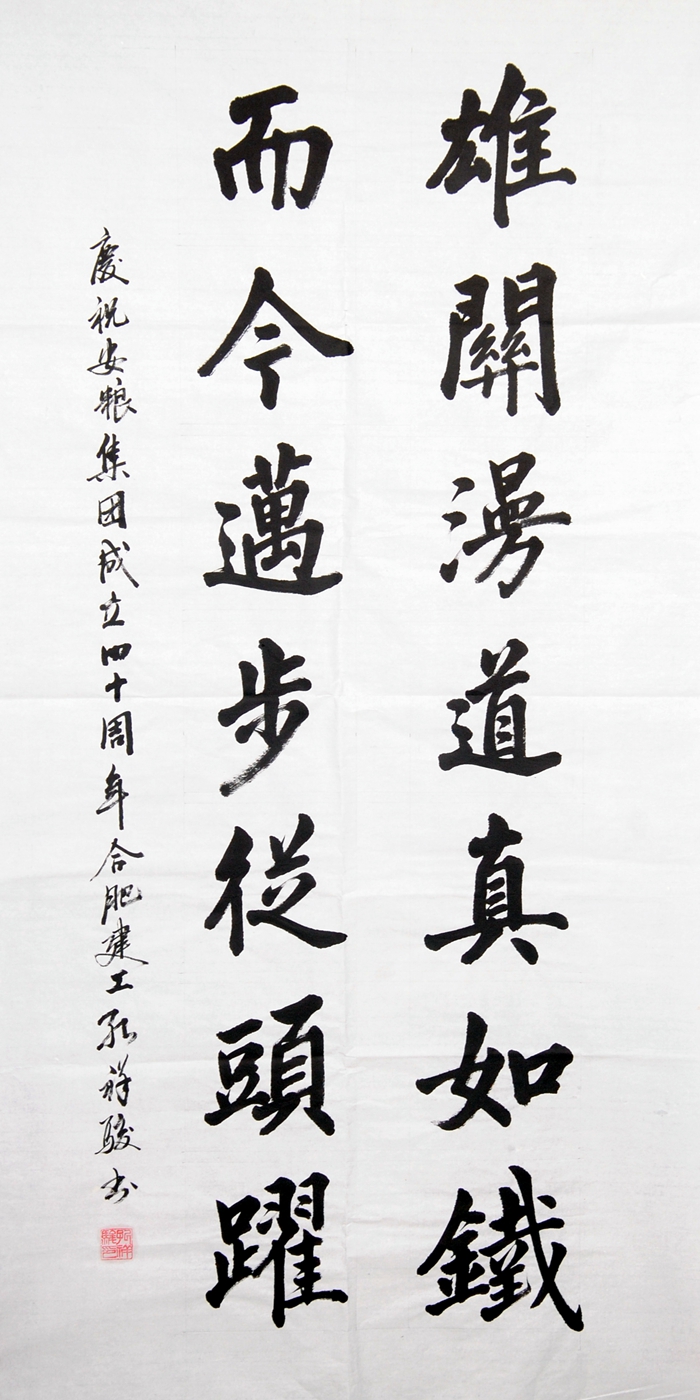 雄關漫道真如鐵
而今邁步從頭躍
慶祝安粮集团成立四十周年合肥建工孔祥駿书